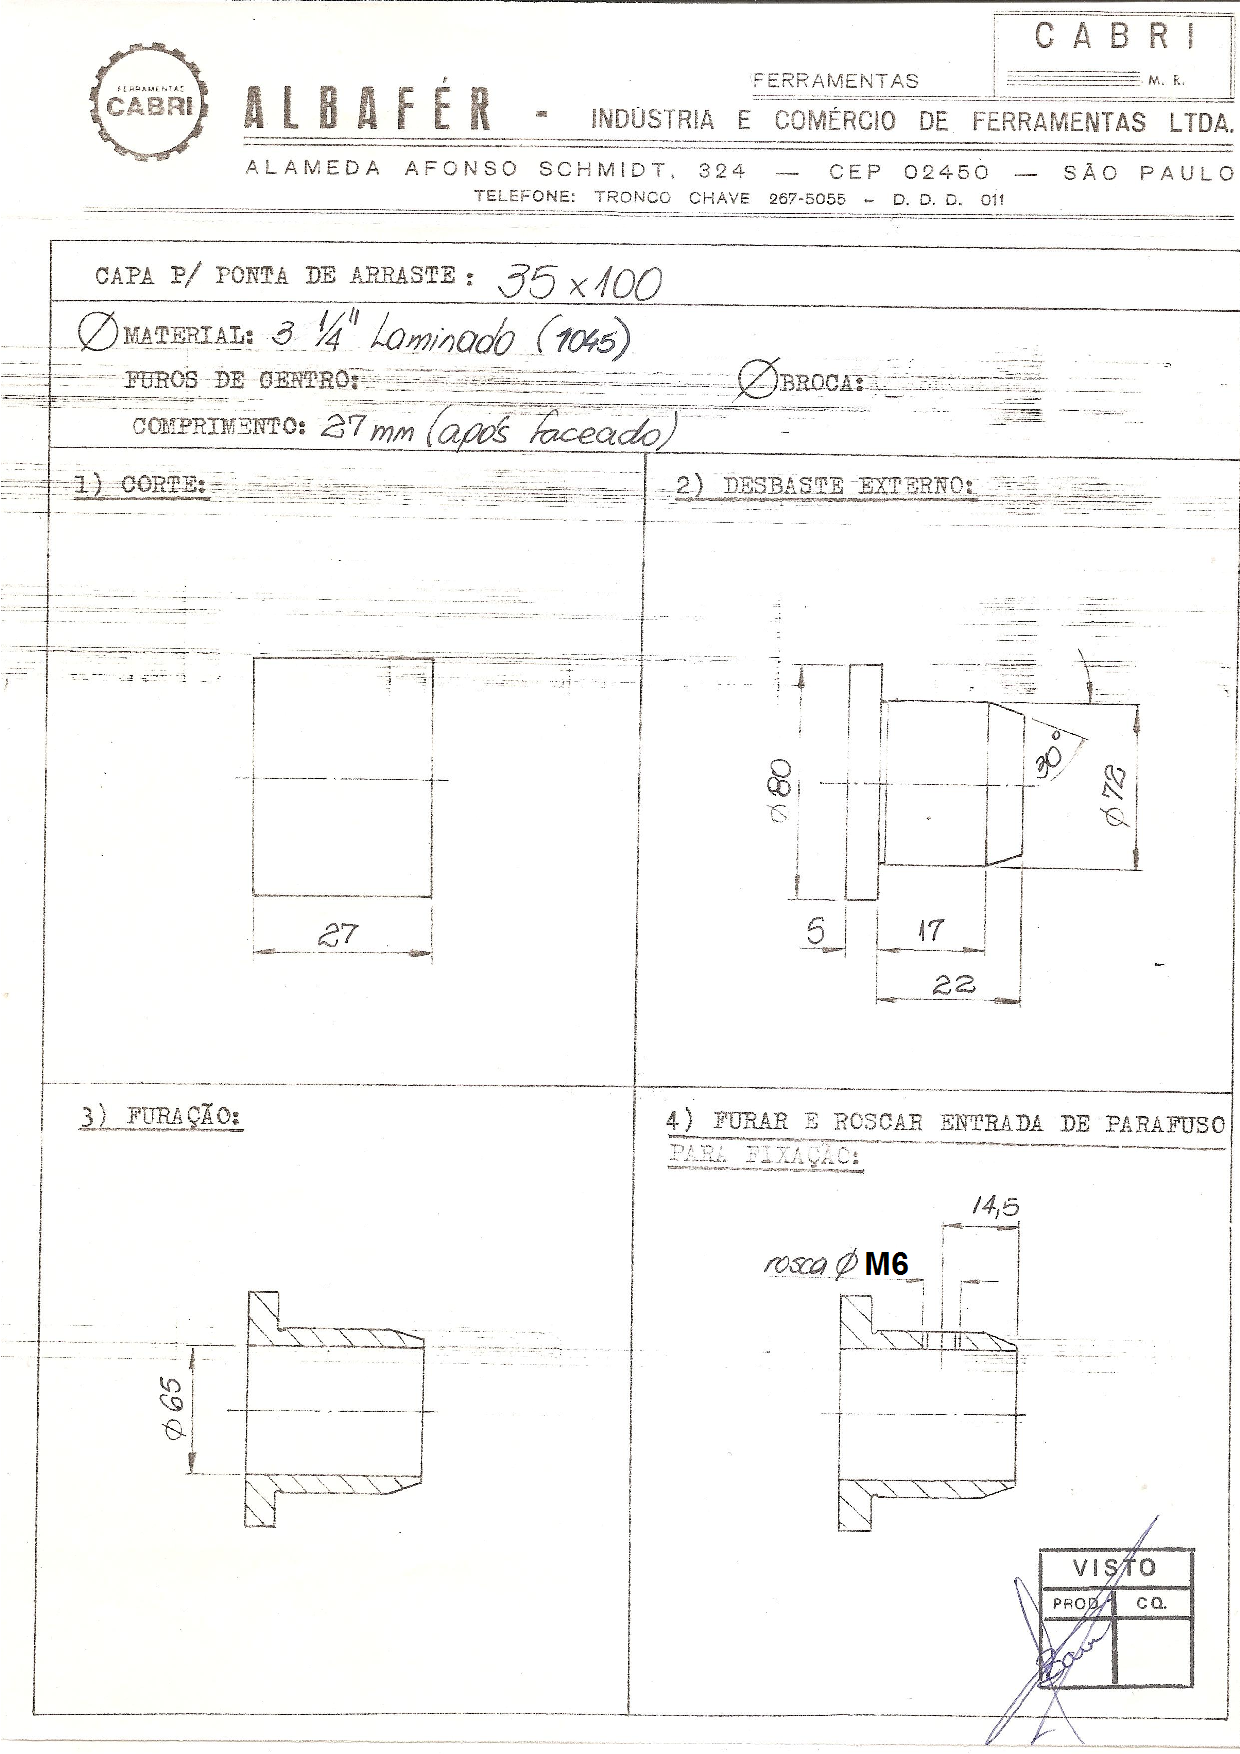 CABRI
M. R.
FERRAMENTAS
CABRI
FERRAMENTAS
ALBAFÉR - INDÚSTRIA E COMÉRCIO DE FERRAMENTAS LTDA.
ALAMEDA AFONSO SCHMIDT, 324 — CEP 02450 — SÃO PAULO
TELEFONE: TRONCO CHAVE 267-5055 - D. D. D. 011
CAPA P/ PONTA DE ARRASTE: 35 x 100
Ø MATERIAL: 3 1/4" Laminado (1045)
FUROS DE CENTRO: Ø BROCA:
COMPRIMENTO: 27 mm (após faceado)
1) CORTE:
27
2) DESBASTE EXTERNO:
Ø 80
30°
Ø 72
5
17
22
3) FURAÇÃO:
Ø 65
4) FURAR E ROSCAR ENTRADA DE PARAFUSO
PARA FIXAÇÃO:
14,5
rosca Ø M6
VISTO
PROD. CQ.